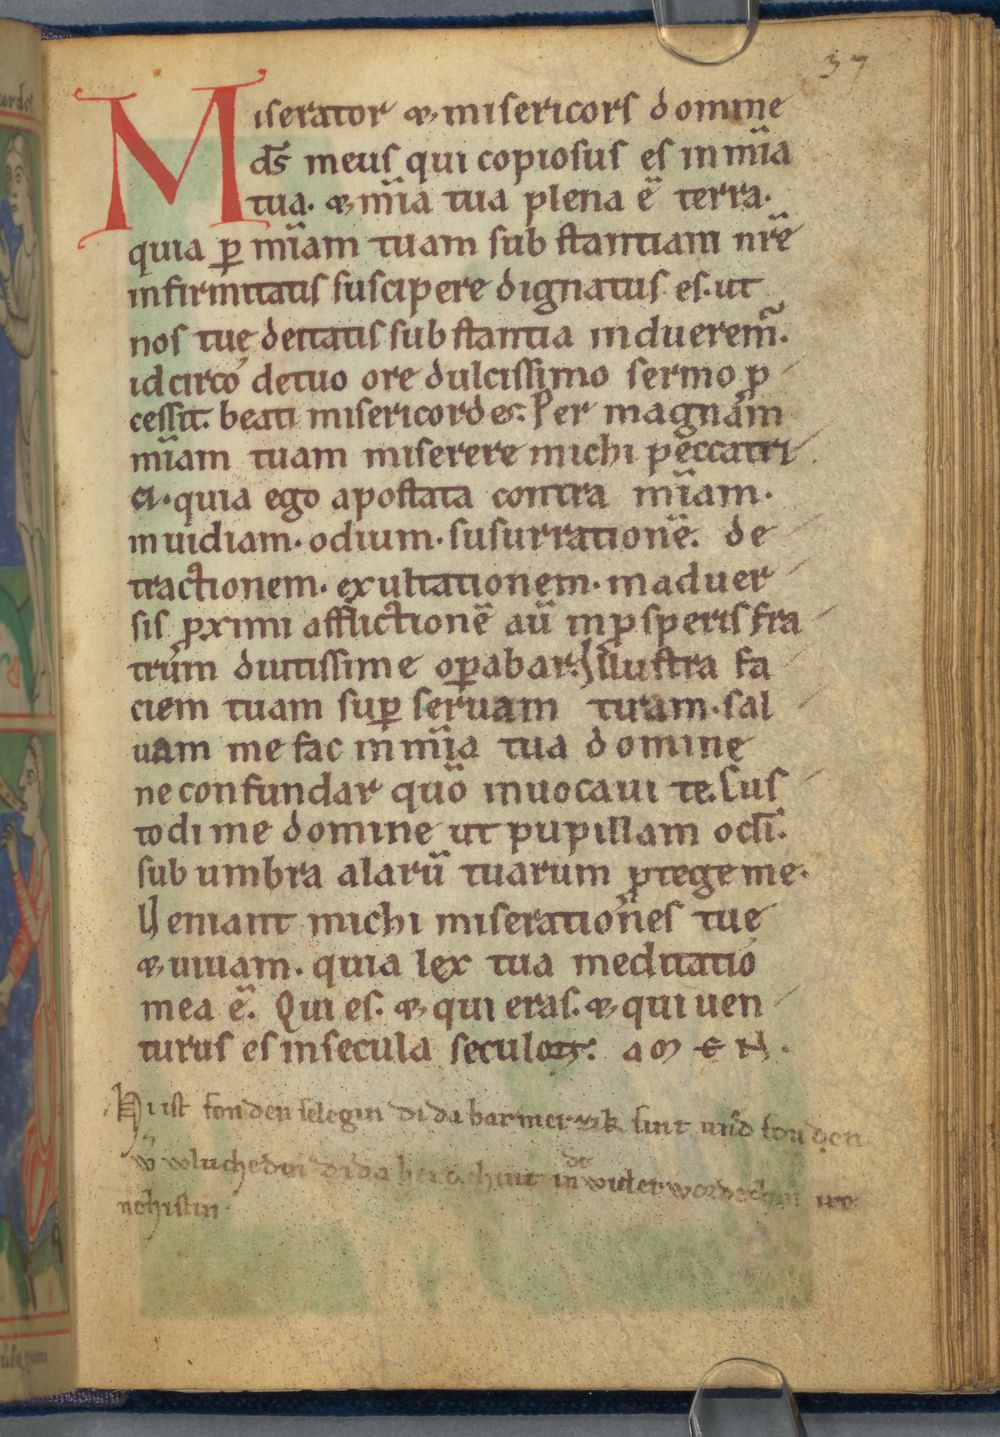 37
Miserator & misericors domine
d̄s meus qui copiosus es in mīa
tua. & mīa tua plena ē terra.
quia ꝑ mīam tuam substantiam nr̄ē
infirmitatis suscipere dignatus es. ut
nos tuę deitatis substantia indueremꝰ.
idcirco de tuo ore dulcissimo sermo ꝓ
cessit. beati misericordes. Per magnam
mīam tuam miserere michi peccatri
ci. quia ego apostata contra mīam.
inuidiam. odium. susurrationē. de
tractionem. exultationem. in aduer
sis ꝓximi afflictionē aū in ꝓsperis fra
trum diutissime oꝑabar. Illustra fa
ciem tuam suꝑ seruam tuam. sal
uam me fac in mīa tua domine
ne confundar quō inuocaui te. Cus
todi me domine ut pupillam ocl̄i.
sub umbra alarū tuarum ꝓtege me.
Veniant michi miserationes tuę
& uiuam. quia lex tua meditatio
mea ē. Qui es. & qui eras. & qui uen
turus es in secula seculoꝝ. AMEN.
Hi ist fon den selegin di da barmerzik sint und fon den
di da
nehistin